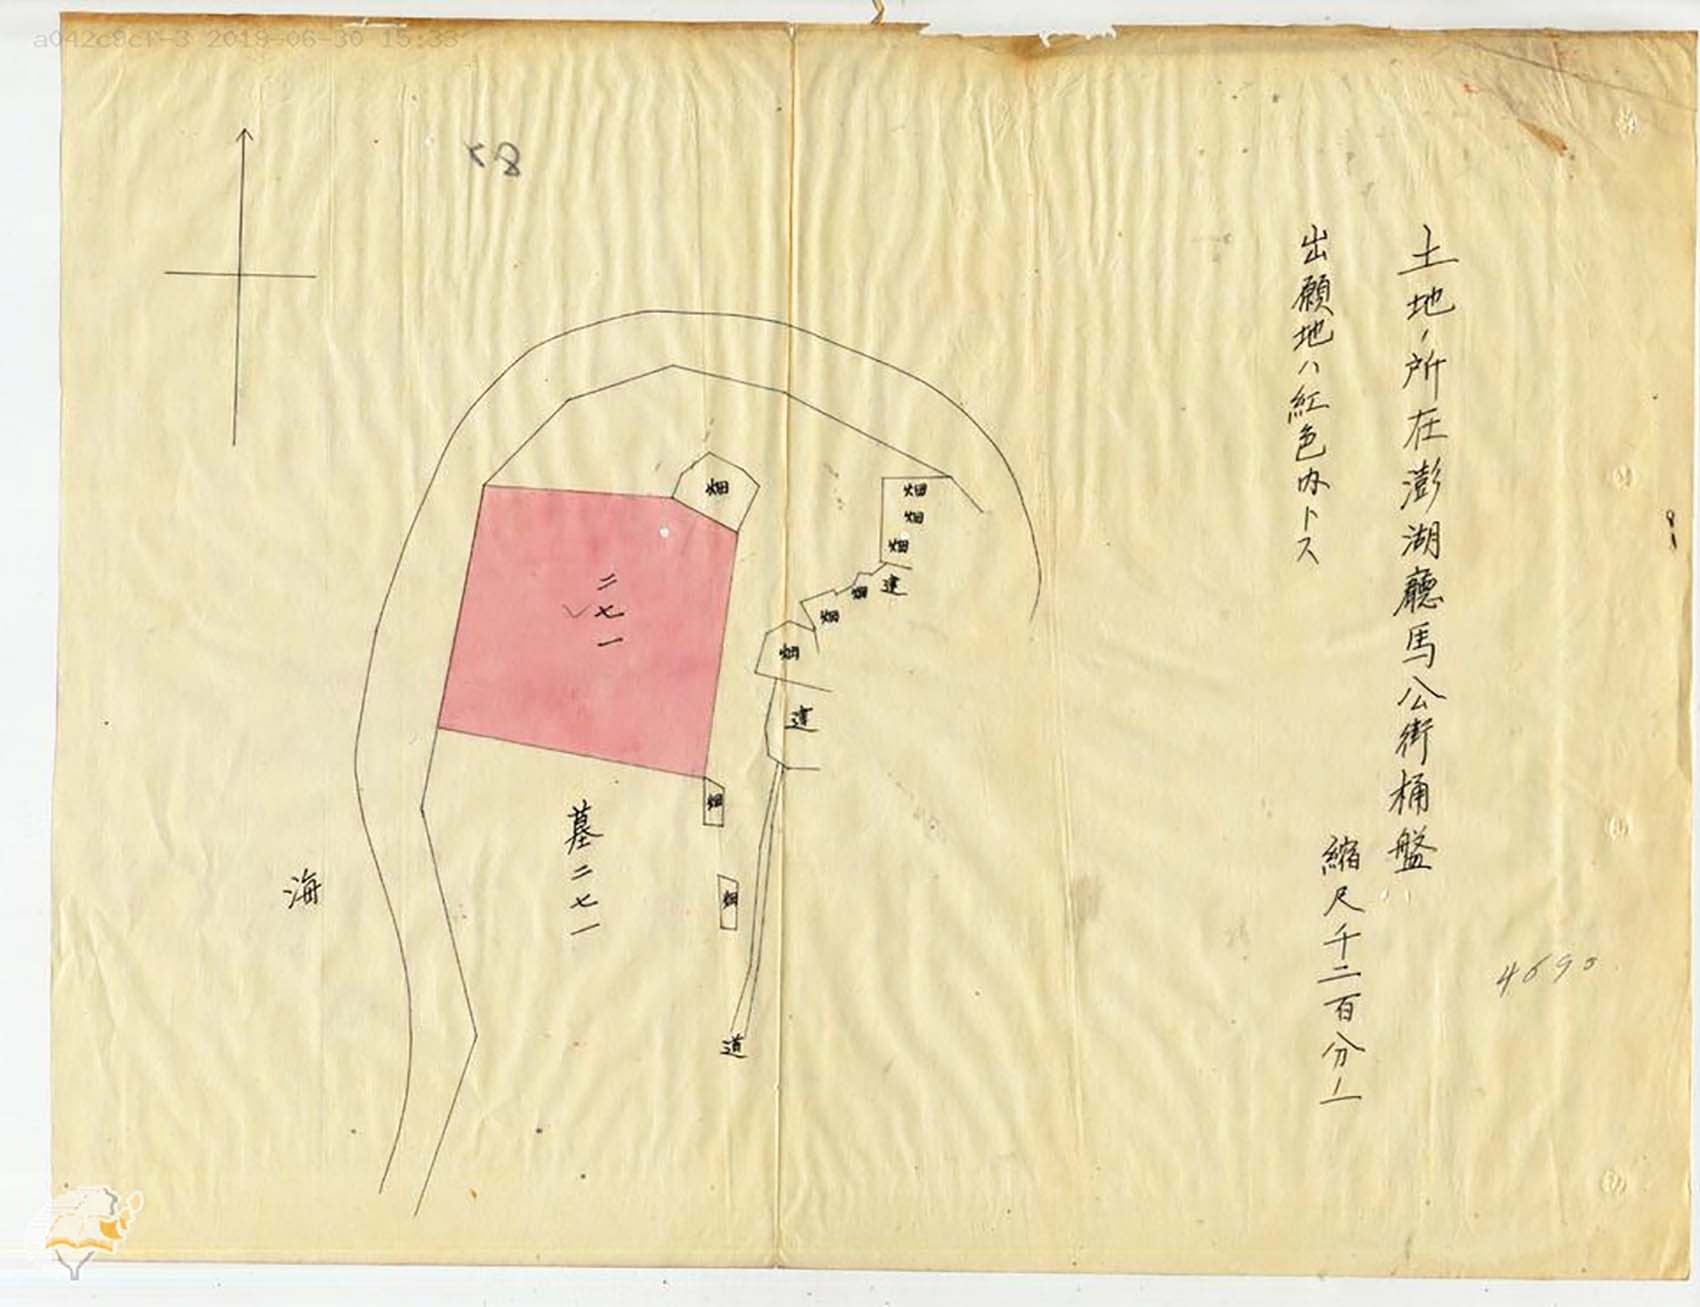 a042c9cf-3 2019-06-30 15:33
土地ノ所在澎湖廳馬公街桶盤
縮尺千二百分ノ一
出願地ハ紅色内トス
4690
58
畑
畑
畑
畑
建
畑
畑
畑
建
二七一
畑
墓二七一
畑
海
道